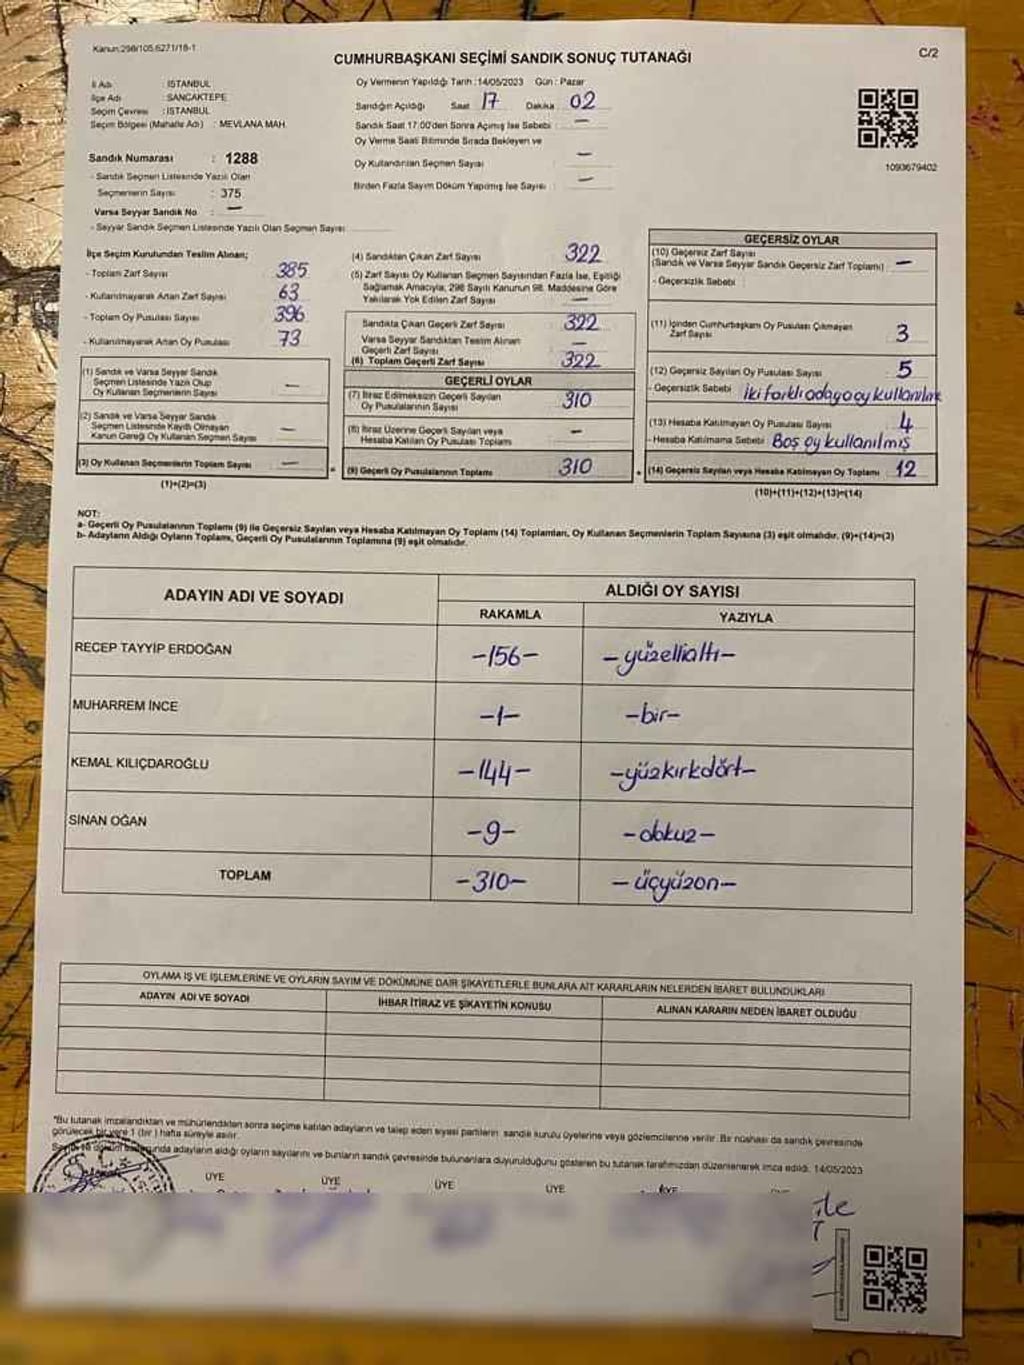 Kanun:298/105,6271/18-1
C/2
CUMHURBAŞKANI SEÇİMİ SANDIK SONUÇ TUTANAĞI
İl Adı : İSTANBUL
İlçe Adı : SANCAKTEPE
Seçim Çevresi : İSTANBUL
Seçim Bölgesi (Mahalle Adı) : MEVLANA MAH.
Sandık Numarası : 1288
- Sandık Seçmen Listesinde Yazılı Olan
Seçmenlerin Sayısı : 375
Varsa Seyyar Sandık No : —
- Seyyar Sandık Seçmen Listesinde Yazılı Olan Seçmen Sayısı
Oy Vermenin Yapıldığı Tarih :14/05/2023 Gün : Pazar
Sandığın Açıldığı Saat 17 Dakika 02
Sandık Saat 17:00'den Sonra Açılmış İse Sebebi : —
Oy Verme Saati Bitiminde Sırada Bekleyen ve
Oy Kullandırılan Seçmen Sayısı : —
Birden Fazla Sayım Döküm Yapılmış İse Sayısı : —
1093679402
İlçe Seçim Kurulundan Teslim Alınan;
- Toplam Zarf Sayısı : 385
- Kullanılmayarak Artan Zarf Sayısı : 63
- Toplam Oy Pusulası Sayısı : 396
- Kullanılmayarak Artan Oy Pusulası : 73
(1) Sandık ve Varsa Seyyar Sandık
Seçmen Listesinde Yazılı Olup
Oy Kullanan Seçmenlerin Sayısı —
(2) Sandık ve Varsa Seyyar Sandık
Seçmen Listesinde Kayıtlı Olmayan
Kanun Gereği Oy Kullanan Seçmen Sayısı —
(3) Oy Kullanan Seçmenlerin Toplam Sayısı —
(1)+(2)=(3)
(4) Sandıktan Çıkan Zarf Sayısı 322
(5) Zarf Sayısı Oy Kullanan Seçmen Sayısından Fazla İse, Eşitliği
Sağlamak Amacıyla, 298 Sayılı Kanunun 98. Maddesine Göre
Yakılarak Yok Edilen Zarf Sayısı —
Sandıkta Çıkan Geçerli Zarf Sayısı 322
Varsa Seyyar Sandıktan Teslim Alınan
Geçerli Zarf Sayısı —
(6) Toplam Geçerli Zarf Sayısı 322
GEÇERLİ OYLAR
(7) İtiraz Edilmeksizin Geçerli Sayılan
Oy Pusulalarının Sayısı 310
(8) İtiraz Üzerine Geçerli Sayılan veya
Hesaba Katılan Oy Pusulası Toplamı —
(9) Geçerli Oy Pusulalarının Toplamı 310
GEÇERSİZ OYLAR
(10) Geçersiz Zarf Sayısı
(Sandık ve Varsa Seyyar Sandık Geçersiz Zarf Toplamı) —
- Geçersizlik Sebebi :
(11) İçinden Cumhurbaşkanı Oy Pusulası Çıkmayan
Zarf Sayısı 3
(12) Geçersiz Sayılan Oy Pusulası Sayısı 5
- Geçersizlik Sebebi iki farklı adaya oy kullanılmış
(13) Hesaba Katılmayan Oy Pusulası Sayısı 4
- Hesaba Katılmama Sebebi Boş oy kullanılmış
(14) Geçersiz Sayılan veya Hesaba Katılmayan Oy Toplamı 12
(10)+(11)+(12)+(13)=(14)
NOT:
a- Geçerli Oy Pusulalarının Toplamı (9) ile Geçersiz Sayılan veya Hesaba Katılmayan Oy Toplamı (14) Toplamları, Oy Kullanan Seçmenlerin Toplam Sayısına (3) eşit olmalıdır. (9)+(14)=(3)
b- Adayların Aldığı Oyların Toplamı, Geçerli Oy Pusulalarının Toplamına (9) eşit olmalıdır.
ADAYIN ADI VE SOYADI
ALDIĞI OY SAYISI
RAKAMLA YAZIYLA
RECEP TAYYİP ERDOĞAN -156- -yüzellialtı-
MUHARREM İNCE -1- -bir-
KEMAL KILIÇDAROĞLU -144- -yüzkırkdört-
SİNAN OĞAN -9- -dokuz-
TOPLAM -310- -üçyüzon-
OYLAMA İŞ VE İŞLEMLERİNE VE OYLARIN SAYIM VE DÖKÜMÜNE DAİR ŞİKAYETLERLE BUNLARA AİT KARARLARIN NELERDEN İBARET BULUNDUKLARI
ADAYIN ADI VE SOYADI İHBAR İTİRAZ VE ŞİKAYETİN KONUSU ALINAN KARARIN NEDEN İBARET OLDUĞU
*Bu tutanak imzalandıktan ve mühürlendikten sonra seçime katılan adayların ve talep eden siyasi partilerin sandık kurulu üyelerine veya gözlemcilerine verilir. Bir nüshası da sandık çevresinde
görülecek bir yere 1 (bir) hafta süreyle asılır.
adayların aldığı oyların sayılarını ve bunların sandık çevresinde bulunanlara duyurulduğunu gösteren bu tutanak tarafımızdan düzenlenerek imza edildi. 14/05/2023
ÜYE ÜYE ÜYE ÜYE ÜYE